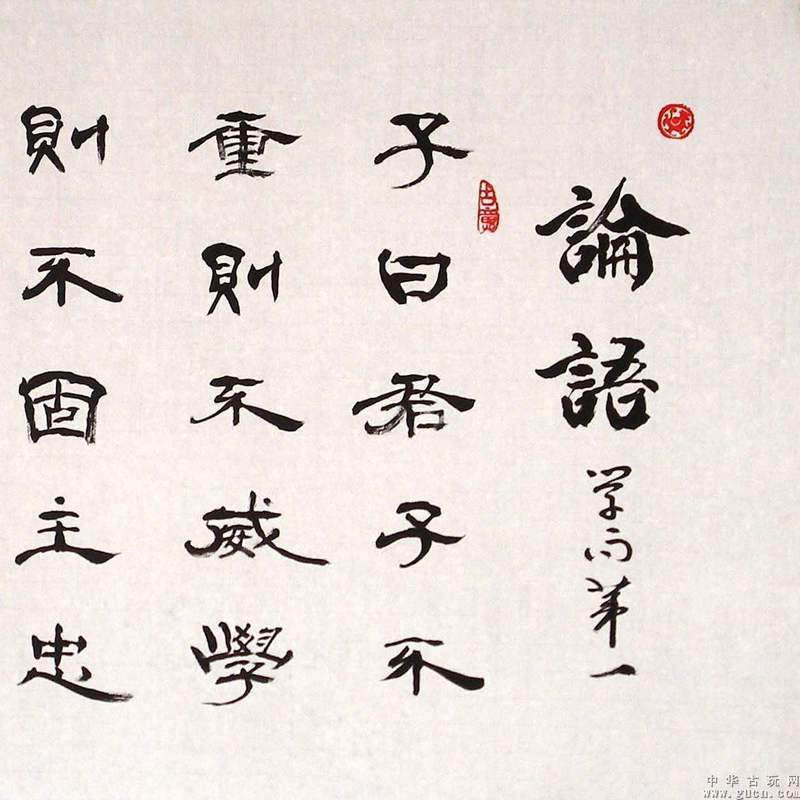 論語
学而第一
子曰君子不
重則不威學
則不固主忠
中华古玩网
www.gucn.com